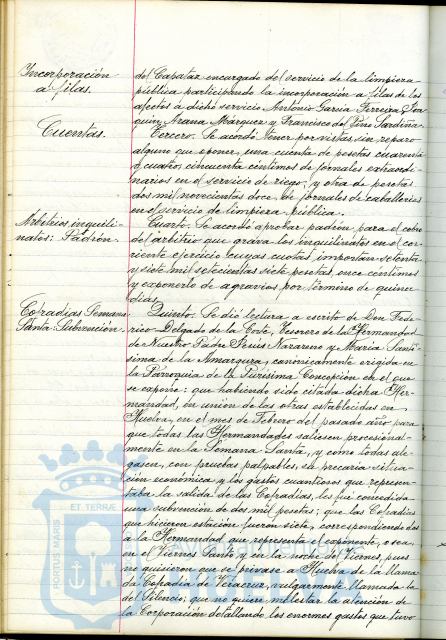 Incorporación
a filas.
Cuentas.
Arbitrios inquili-
natos: Padrón.
Cofradías Semana
Santa: Subvención.
del Capataz encargado del servicio de la limpieza
pública participando la incorporación a filas de los
afectos á dicho servicio Antonio García Ferreira, Joa-
quin Arana Márquez y Francisco del Pino Sardiña.
Tercero. Se acordó tener por vistas, sin reparo
alguno que oponer, una cuenta de pesetas cuarenta
y cuatro, cincuenta céntimos de jornales extraordi-
narios en el servicio de riego; y otra de pesetas
dos mil novecientas doce, de jornales de caballerías
en el servicio de limpieza pública.
Cuarto. Se acordó aprobar padrón para el cobro
del arbitrio que grava los inquilinatos en el co-
rriente ejercicio cuyas cuotas importan setenta
y siete mil setecientas siete pesetas, once céntimos
y exponerlo de agravios por término de quince
días.
Quinto. Se dió lectura a escrito de Don Fede-
rico Delgado de la Corte, Tesorero de la Hermandad
de Nuestro Padre Jesús Nazareno y María Santí-
sima de la Amargura, canonicamente erigida en
la Parroquia de la Purísima Concepción en el que
se expone: que habiendo sido citada dicha Her-
mandad, en union de las otras establecidas en
Huelva, en el mes de Febrero del pasado año para
que todas las Hermandades saliesen procesional-
mente en la Semana Santa, y como todas ale-
gasen, con pruebas palpables, su precaria situa-
ción económica y los gastos cuantiosos que represen-
taba la salida de las Cofradías, les fué concedida
una subvención de dos mil pesetas; que las Cofradías
que hicieron estación fueron siete, correspondiendo dos
a la Hermandad que representa el exponente, o sea,
en el Viernes Santo y en la noche del Viernes, pues
no quisieron que se privase a Huelva de la llama-
da Cofradía de Veracruz, vulgarmente llamada la
del Silencio; que no quiere molestar la atención de
la Corporación detallando los enormes gastos que tuvo
PORTUS MARIS ET TERRÆ CUSTODIA